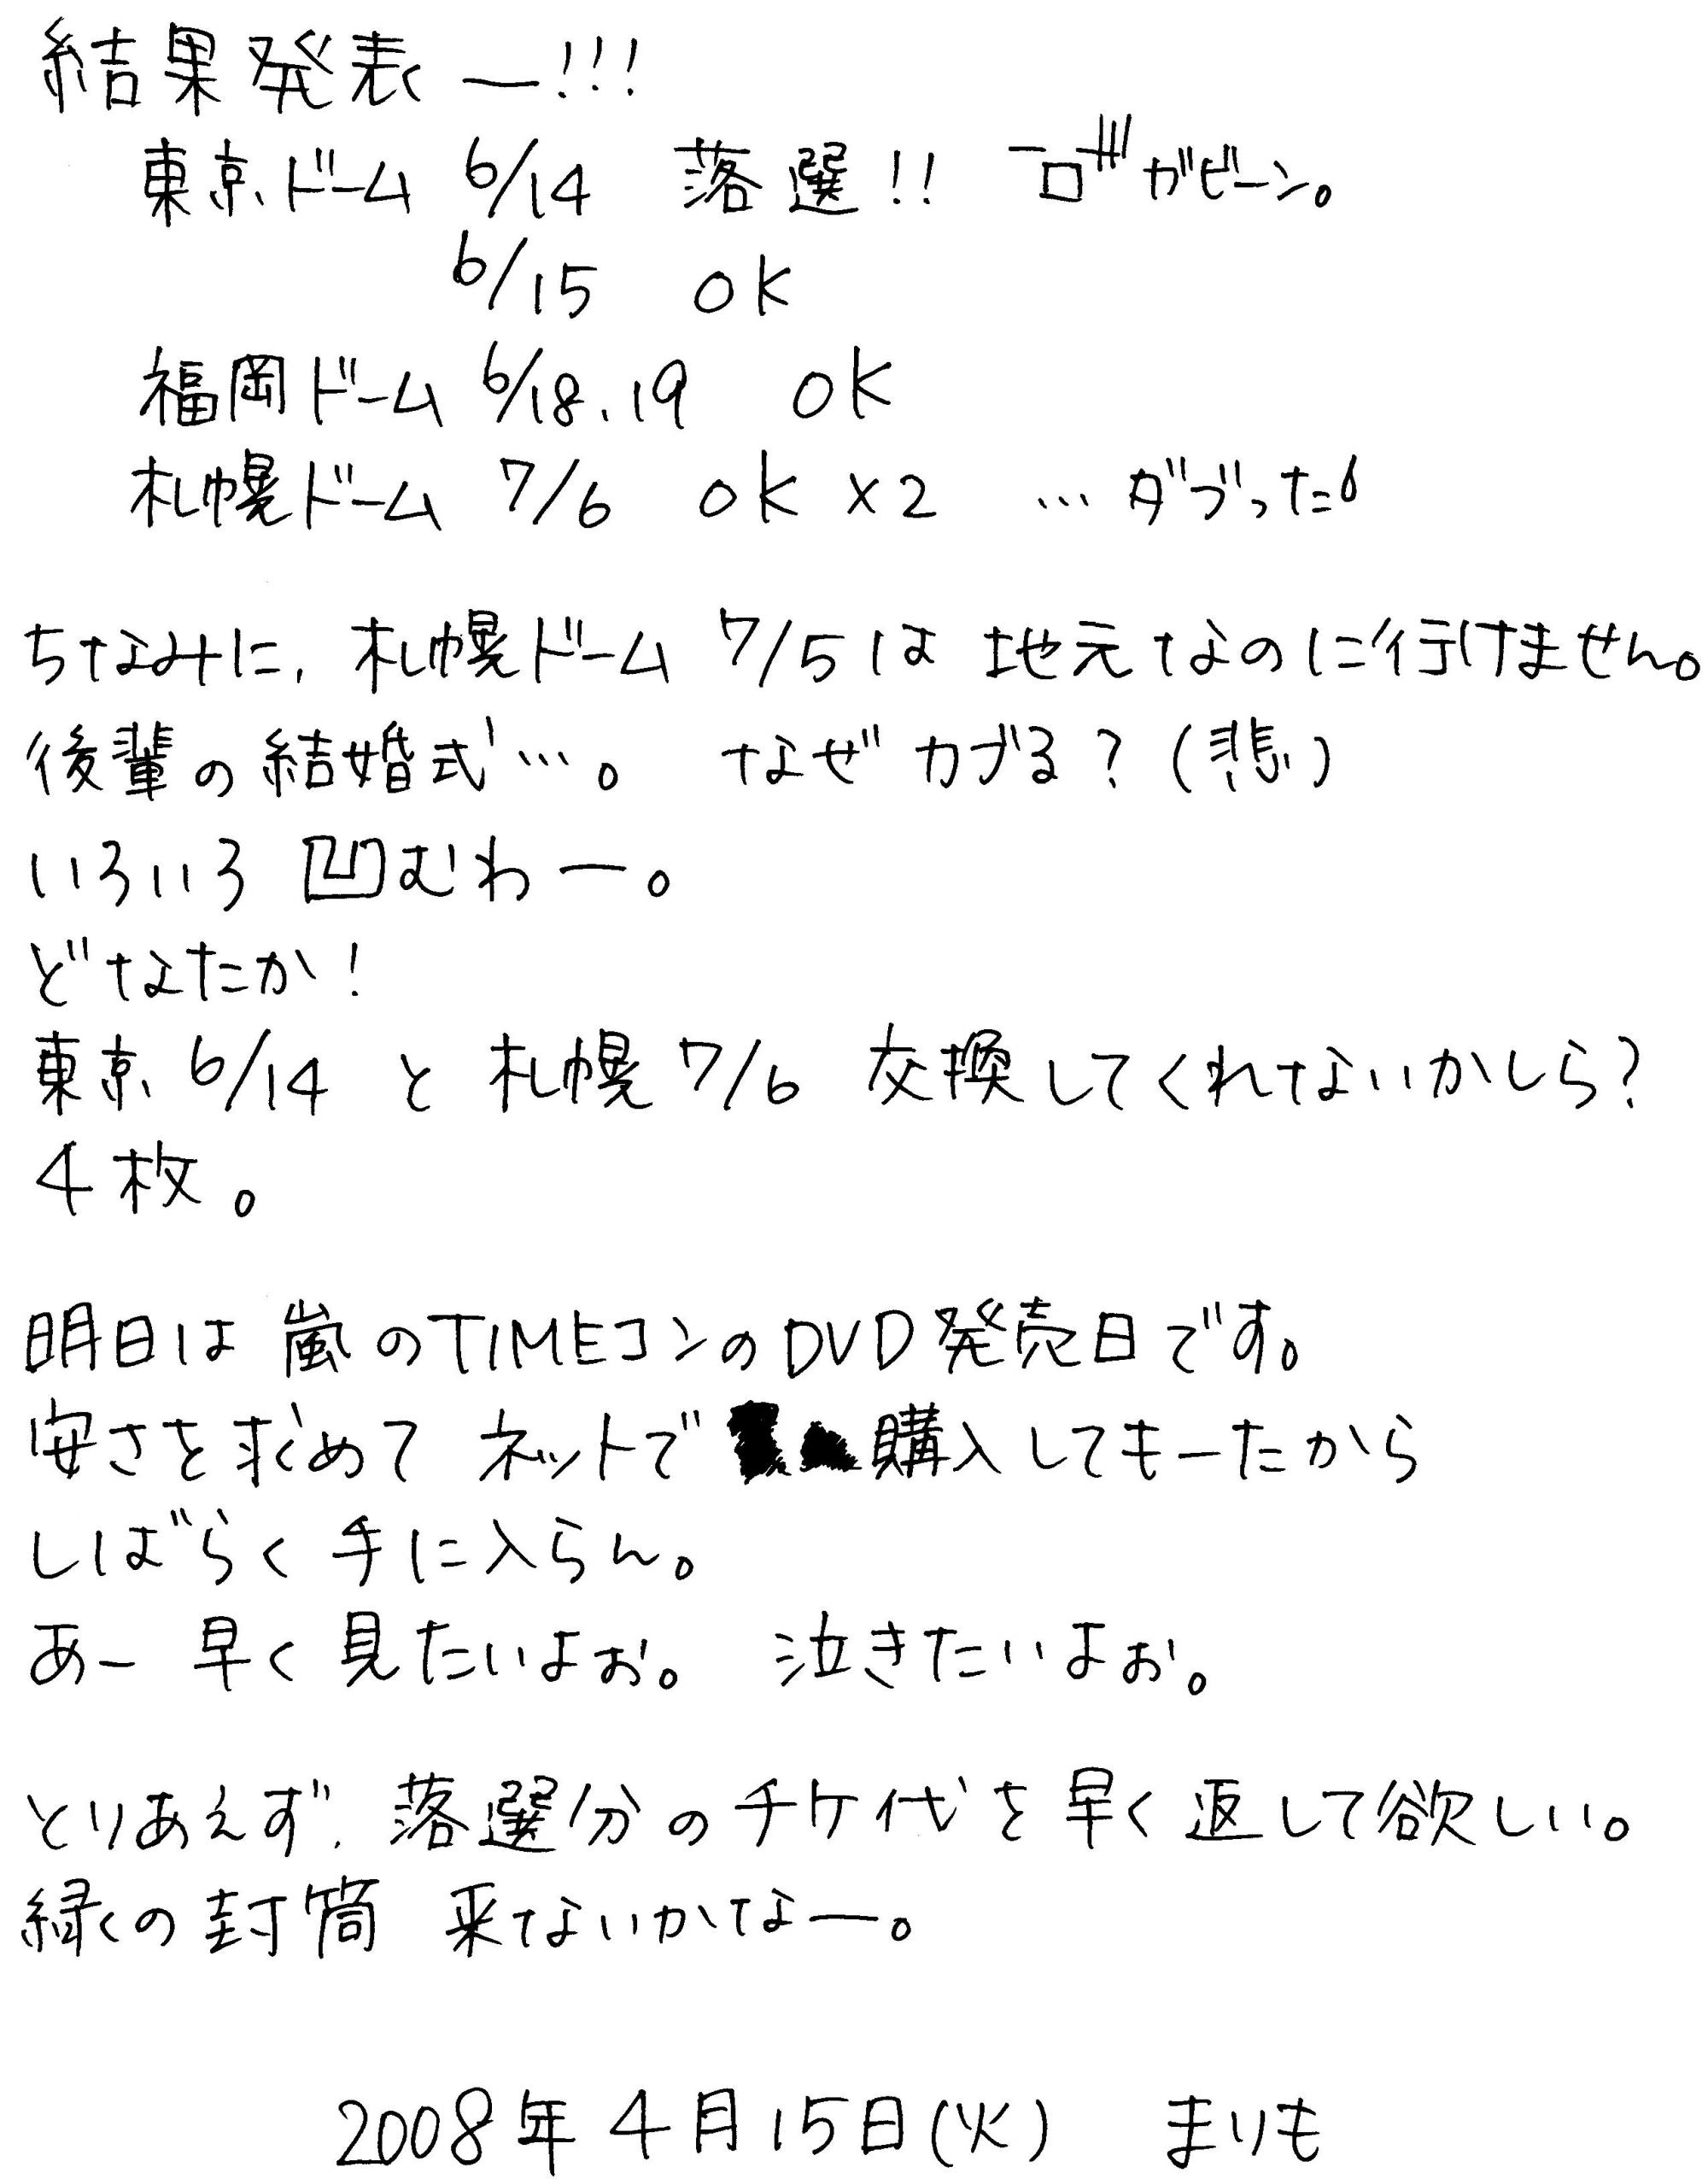 結果発表ー!!!
東京ドーム 6/14 落選!! ガビーン。
6/15 OK
福岡ドーム 6/18.19 OK
札幌ドーム 7/6 OK×2 …ダブった
ちなみに、札幌ドーム 7/5は 地元なのに行けません。
後輩の結婚式…。 なぜ カブる?(悲)
いろいろ 凹むわー。
どなたか!
東京 6/14 と 札幌 7/6 交換してくれないかしら?
4枚。
明日は 嵐のTIMEコンのDVD発売日です。
安さを求めて ネットで 購入してもーたから
しばらく 手に入らん。
あー 早く 見たいよぉ。 泣きたいよぉ。
とりあえず、落選分のチケ代を早く返して欲しい。
緑の封筒 来ないかなー。
2008年4月15日(火) まりも